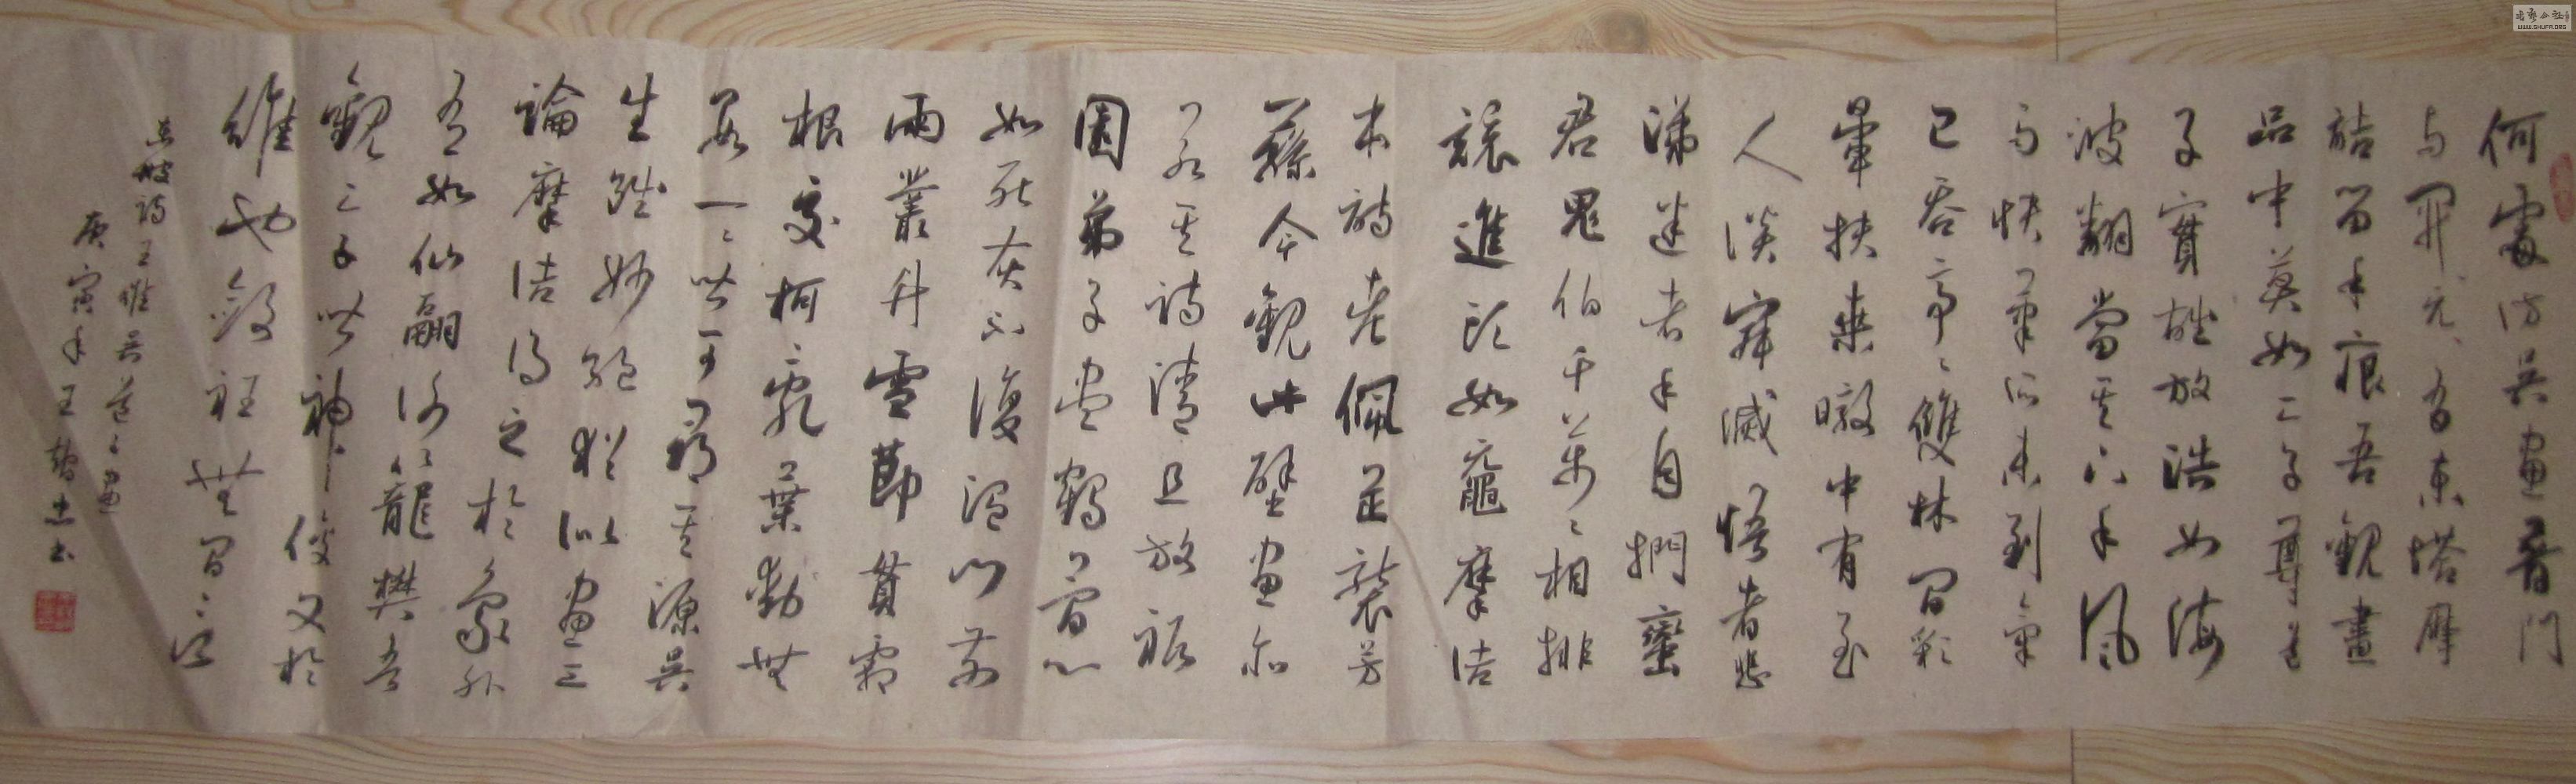 何處訪吳畫普門
與開元〻有東塔摩
詰留手痕吾觀畫
品中莫如二子尊道
子實雄放浩如海
波翻當其下手風
雨快筆所未到氣
已吞亭〻雙林間彩
暈扶桑暾中有至
人談寂滅悟者悲
涕迷者手自捫蠻
君鬼伯千萬〻相排
競進頭如黿摩詰
本詩老佩芷襲芳
蓀今觀此壁畫亦
若其詩清且敦祇
園弟子盡鶴骨心
如死灰不復溫門前
兩叢竹雪節貫霜
根交柯亂葉動無
數一〻皆可尋其源吳
生雖妙絕猶以畫工
論摩詰得之於象外
有如仙翮謝籠樊吾
觀二子皆神俊又於
維也斂衽無間言
東坡詩王維吳道子畫
庚寅年王書
WWW.SHUFA.ORG